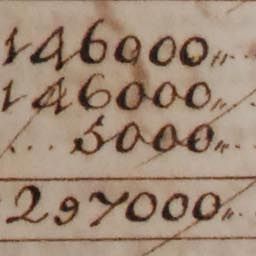 146000,,..
146000,,..
... 5000,,..
297000,,.